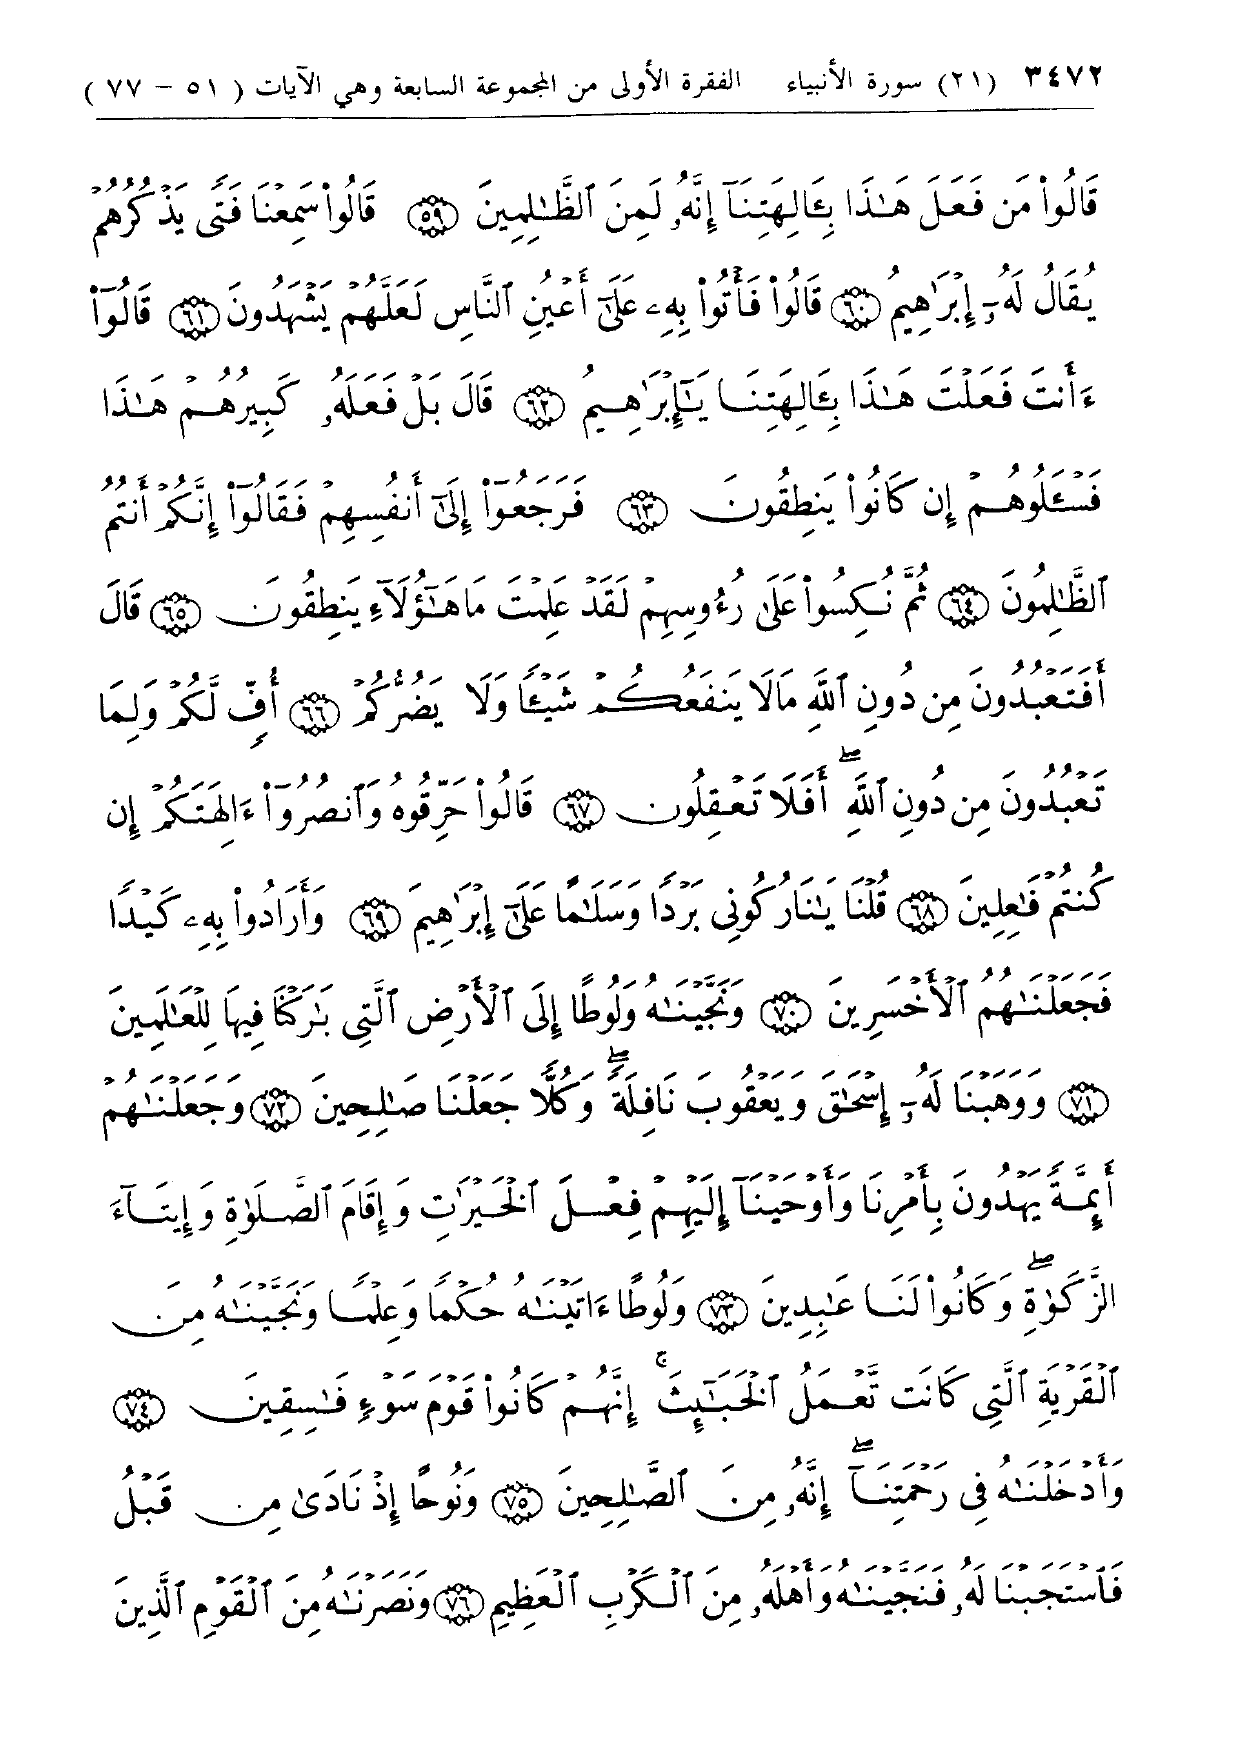 ٣٤٧٢ (٢١) سورة الأنبياء الفقرة الأولى من المجموعة السابعة وهي الآيات ( ٥١ - ٧٧ )
قَالُوا۟ مَن فَعَلَ هَـٰذَا بِـَٔالِهَتِنَآ إِنَّهُۥ لَمِنَ ٱلظَّـٰلِمِينَ ٥٩ قَالُوا۟ سَمِعْنَا فَتًى يَذْكُرُهُمْ
يُقَالُ لَهُۥٓ إِبْرَٰهِيمُ ٦٠ قَالُوا۟ فَأْتُوا۟ بِهِۦ عَلَىٰٓ أَعْيُنِ ٱلنَّاسِ لَعَلَّهُمْ يَشْهَدُونَ ٦١ قَالُوٓا۟
ءَأَنتَ فَعَلْتَ هَـٰذَا بِـَٔالِهَتِنَا يَـٰٓإِبْرَٰهِيمُ ٦٢ قَالَ بَلْ فَعَلَهُۥ كَبِيرُهُمْ هَـٰذَا
فَسْـَٔلُوهُمْ إِن كَانُوا۟ يَنطِقُونَ ٦٣ فَرَجَعُوٓا۟ إِلَىٰٓ أَنفُسِهِمْ فَقَالُوٓا۟ إِنَّكُمْ أَنتُمُ
ٱلظَّـٰلِمُونَ ٦٤ ثُمَّ نُكِسُوا۟ عَلَىٰ رُءُوسِهِمْ لَقَدْ عَلِمْتَ مَا هَـٰٓؤُلَآءِ يَنطِقُونَ ٦٥ قَالَ
أَفَتَعْبُدُونَ مِن دُونِ ٱللَّهِ مَا لَا يَنفَعُكُمْ شَيْـًٔا وَلَا يَضُرُّكُمْ ٦٦ أُفٍّ لَّكُمْ وَلِمَا
تَعْبُدُونَ مِن دُونِ ٱللَّهِ ۖ أَفَلَا تَعْقِلُونَ ٦٧ قَالُوا۟ حَرِّقُوهُ وَٱنصُرُوٓا۟ ءَالِهَتَكُمْ إِن
كُنتُمْ فَـٰعِلِينَ ٦٨ قُلْنَا يَـٰنَارُ كُونِى بَرْدًا وَسَلَـٰمًا عَلَىٰٓ إِبْرَٰهِيمَ ٦٩ وَأَرَادُوا۟ بِهِۦ كَيْدًا
فَجَعَلْنَـٰهُمُ ٱلْأَخْسَرِينَ ٧٠ وَنَجَّيْنَـٰهُ وَلُوطًا إِلَى ٱلْأَرْضِ ٱلَّتِى بَـٰرَكْنَا فِيهَا لِلْعَـٰلَمِينَ
٧١ وَوَهَبْنَا لَهُۥٓ إِسْحَـٰقَ وَيَعْقُوبَ نَافِلَةً ۖ وَكُلًّا جَعَلْنَا صَـٰلِحِينَ ٧٢ وَجَعَلْنَـٰهُمْ
أَئِمَّةً يَهْدُونَ بِأَمْرِنَا وَأَوْحَيْنَآ إِلَيْهِمْ فِعْلَ ٱلْخَيْرَٰتِ وَإِقَامَ ٱلصَّلَوٰةِ وَإِيتَآءَ
ٱلزَّكَوٰةِ ۖ وَكَانُوا۟ لَنَا عَـٰبِدِينَ ٧٣ وَلُوطًا ءَاتَيْنَـٰهُ حُكْمًا وَعِلْمًا وَنَجَّيْنَـٰهُ مِنَ
ٱلْقَرْيَةِ ٱلَّتِى كَانَت تَّعْمَلُ ٱلْخَبَـٰٓئِثَ ۚ إِنَّهُمْ كَانُوا۟ قَوْمَ سَوْءٍ فَـٰسِقِينَ ٧٤
وَأَدْخَلْنَـٰهُ فِى رَحْمَتِنَآ ۖ إِنَّهُۥ مِنَ ٱلصَّـٰلِحِينَ ٧٥ وَنُوحًا إِذْ نَادَىٰ مِن قَبْلُ
فَٱسْتَجَبْنَا لَهُۥ فَنَجَّيْنَـٰهُ وَأَهْلَهُۥ مِنَ ٱلْكَرْبِ ٱلْعَظِيمِ ٧٦ وَنَصَرْنَـٰهُ مِنَ ٱلْقَوْمِ ٱلَّذِينَ